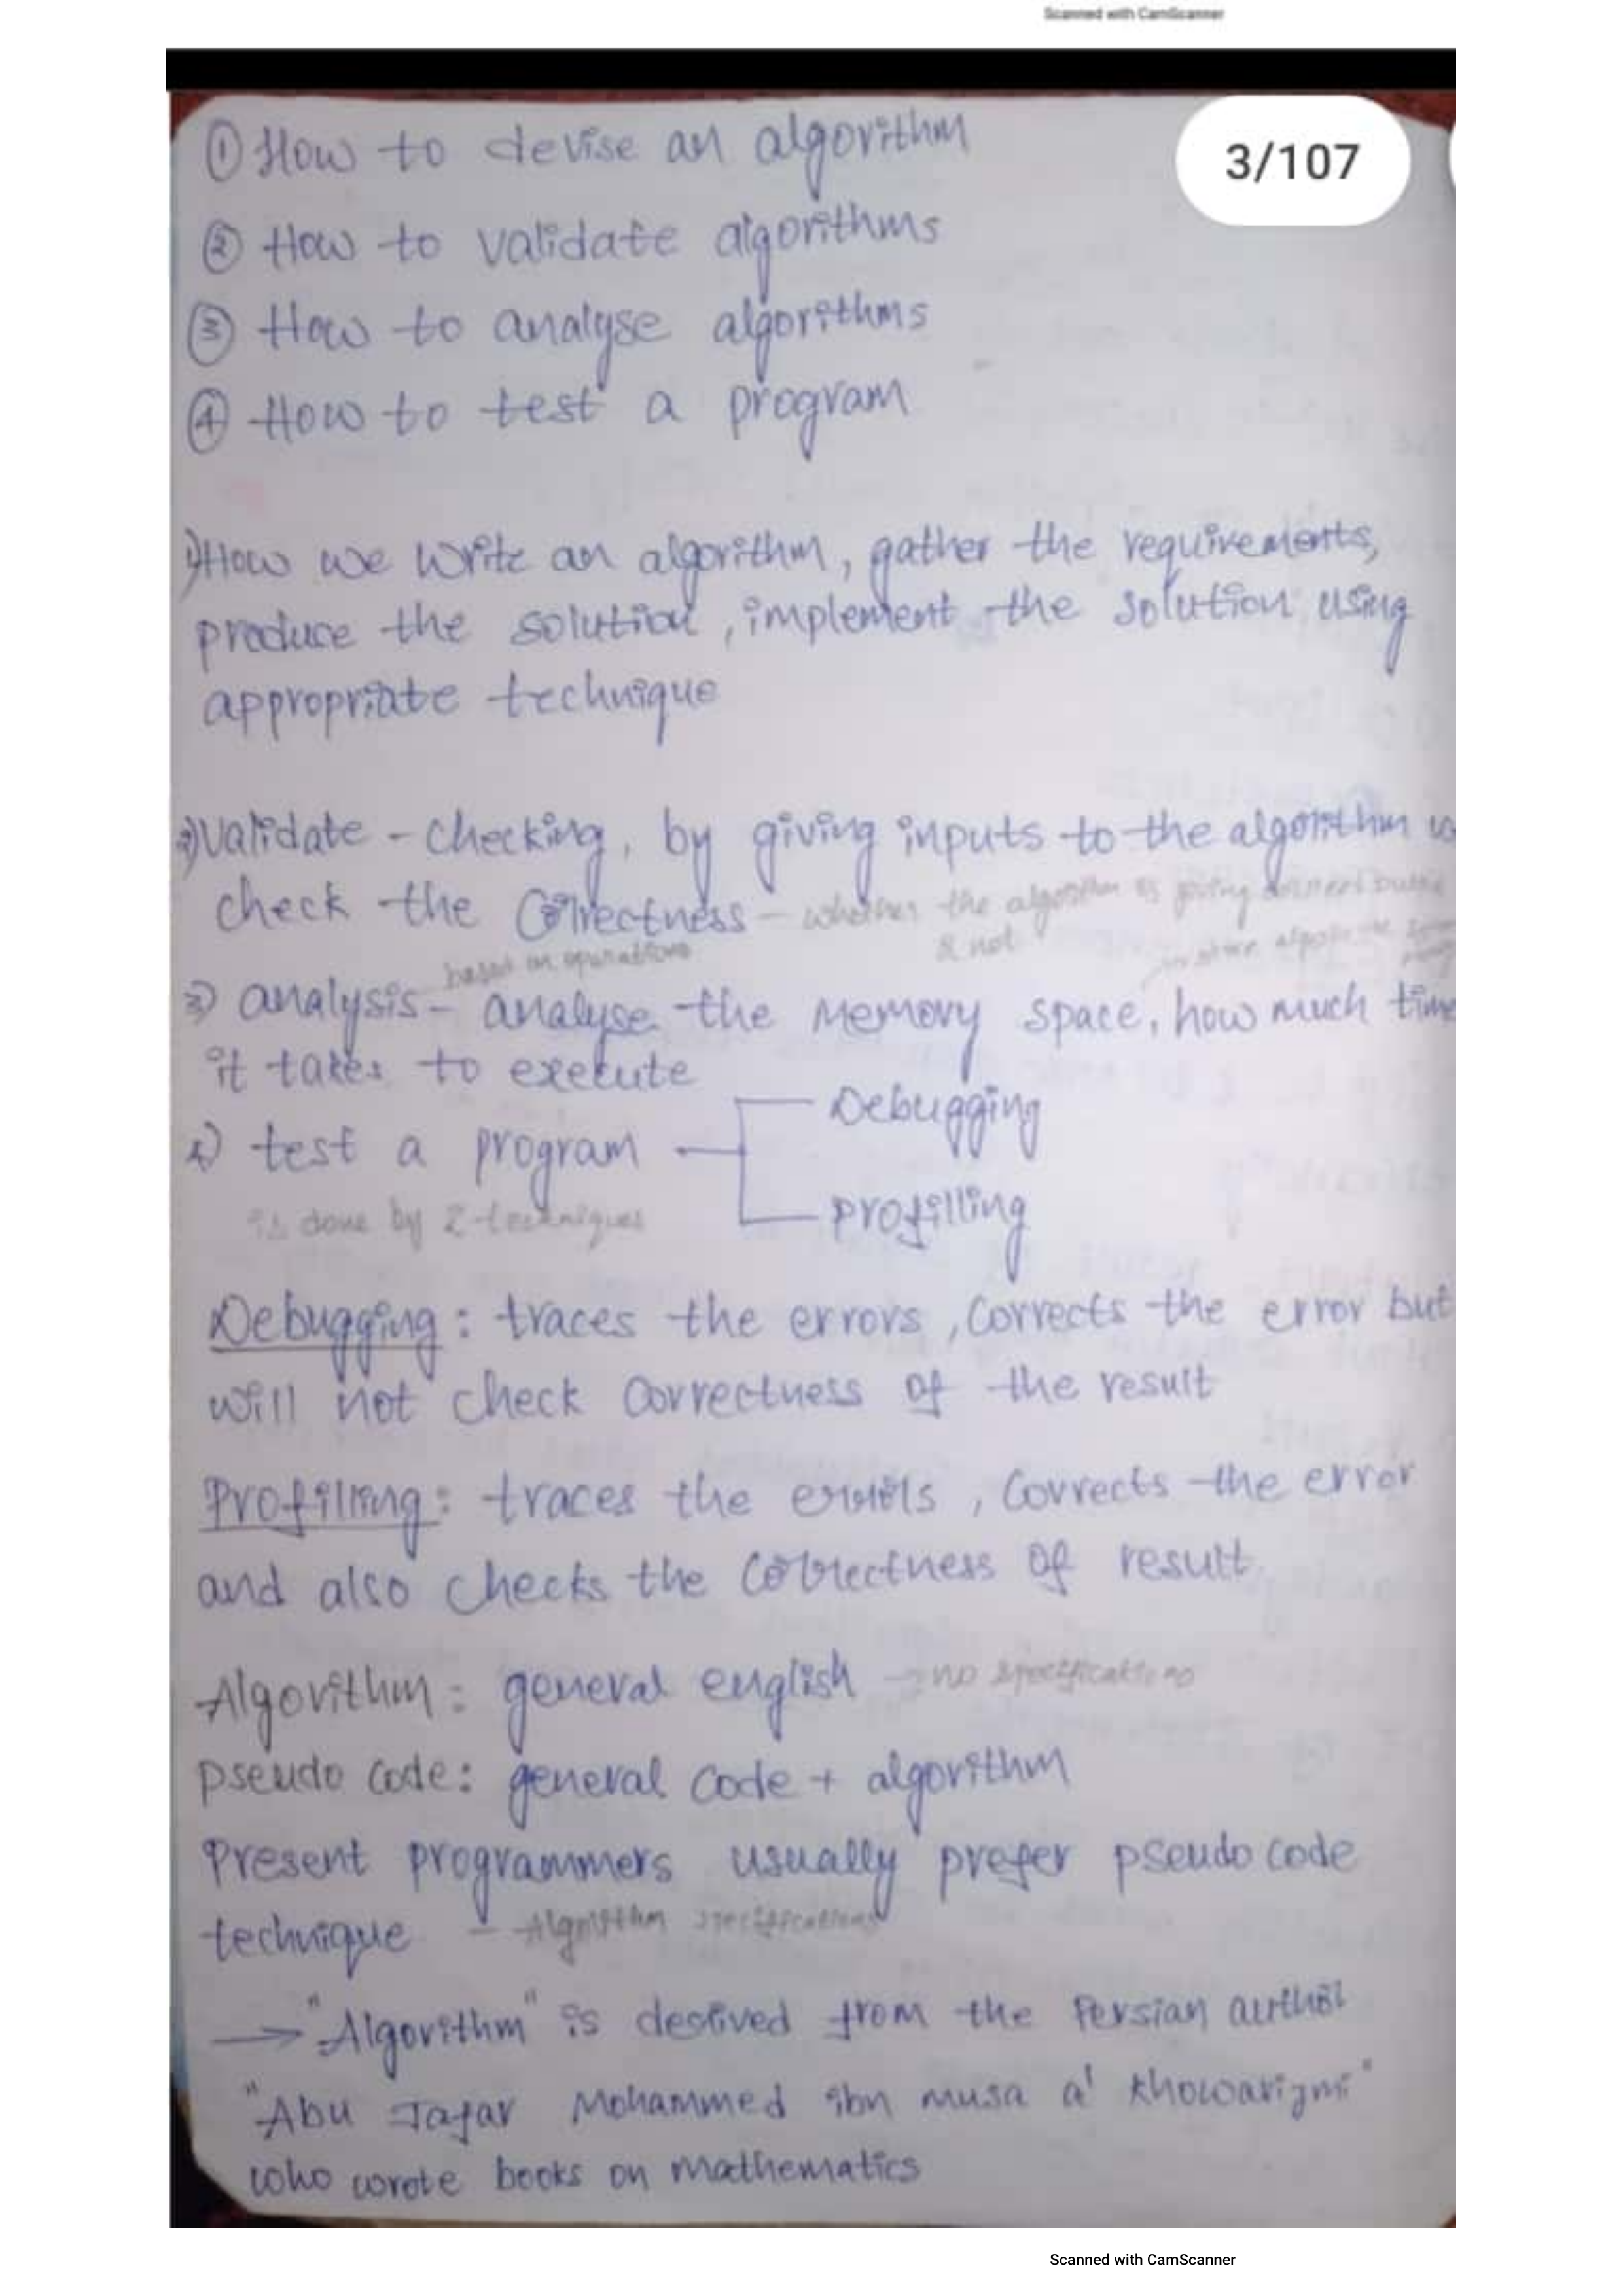 Scanned with CamScanner
3/107
① How to devise an algorithm
② How to validate algorithms
③ How to analyse algorithms
④ How to test a program
1) How we write an algorithm, gather the requirements,
produce the solution, implement the solution using
appropriate technique
2) Validate - checking, by giving inputs to the algorithm
check the correctness - whether the algorithm is giving correct
& not
based on operations
3) analysis - analyse the memory space, how much time
it takes to execute
4) test a program
Debugging
Profilling
is done by 2-techniques
Debugging: traces the errors, corrects the error but
will not check correctness of the result
Profilling: traces the errors, corrects the error
and also checks the correctness of result
Algorithm: general english - no specifications
pseudo code: general code + algorithm
Present programmers usually prefer pseudo code
technique - Algorithm specifications
→ "Algorithm" is derived from the Persian author
"Abu Jafar Mohammed ibn musa al khowarizmi"
who wrote books on mathematics
Scanned with CamScanner